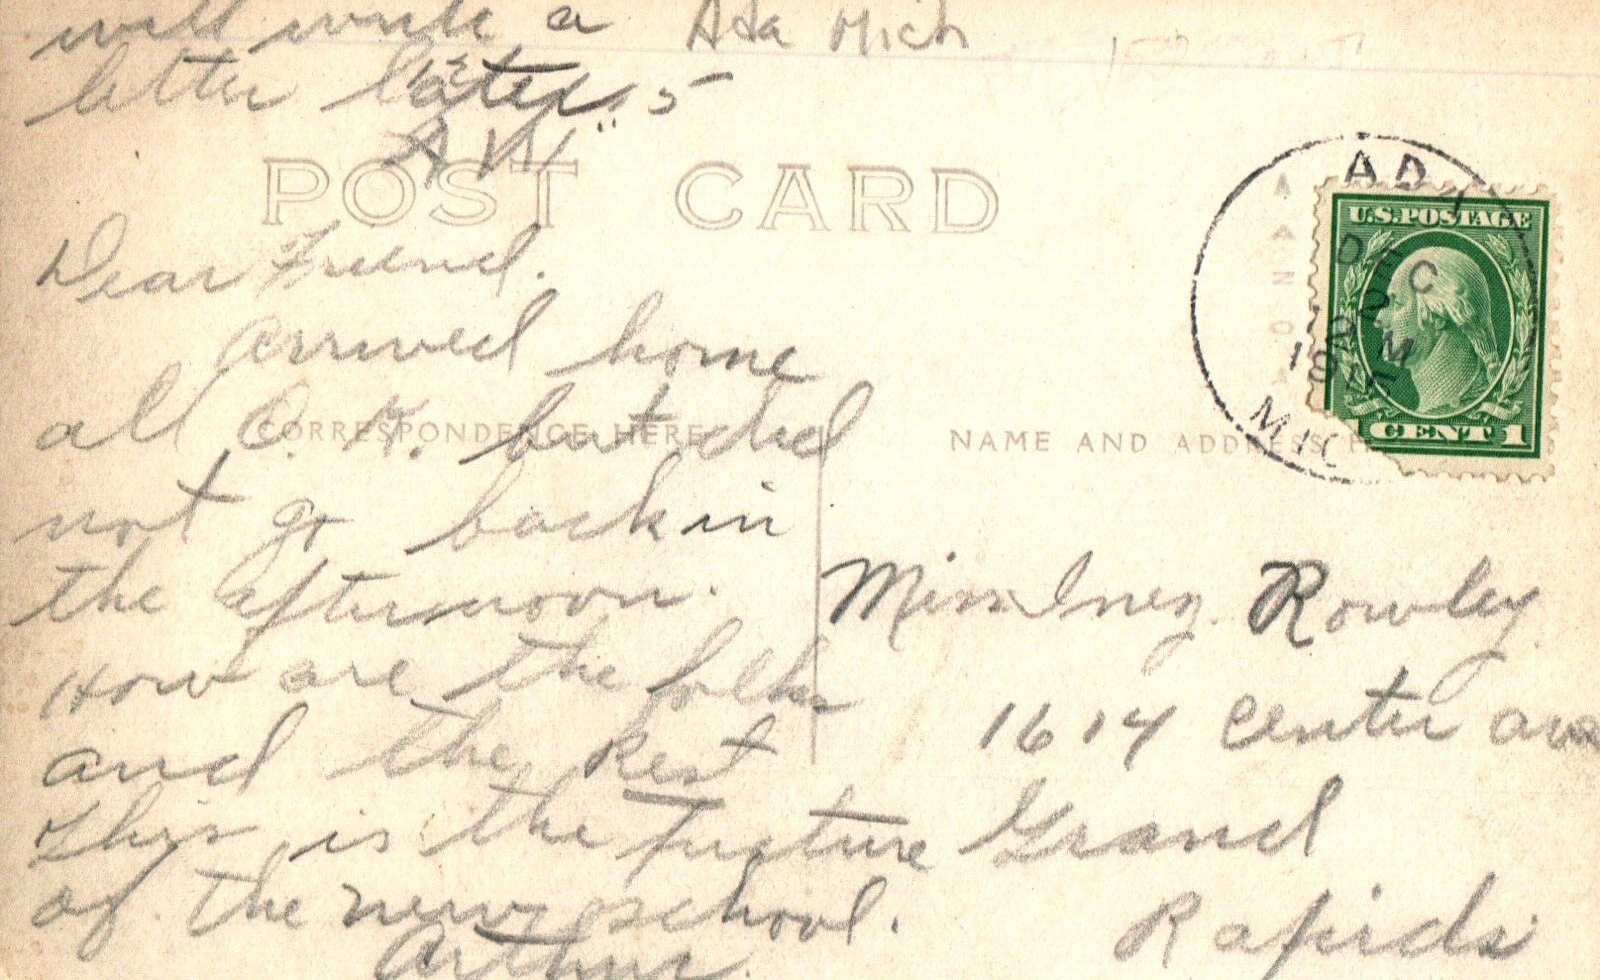 will write a Ada Mich
letter later
A W
POST CARD
ADA
DEC
2
M
MIC
U.S. POSTAGE
CENT 1
Dear Friend.
arrived home
all O.K. but did
not go back in
the afternoon.
How are the folks
and the Rest
This is the Picture
of the new school.
Arthur.
CORRESPONDENCE HERE
NAME AND ADDRESS H
Miss Inez Rowley
1614 Center ave
Grand
Rapids